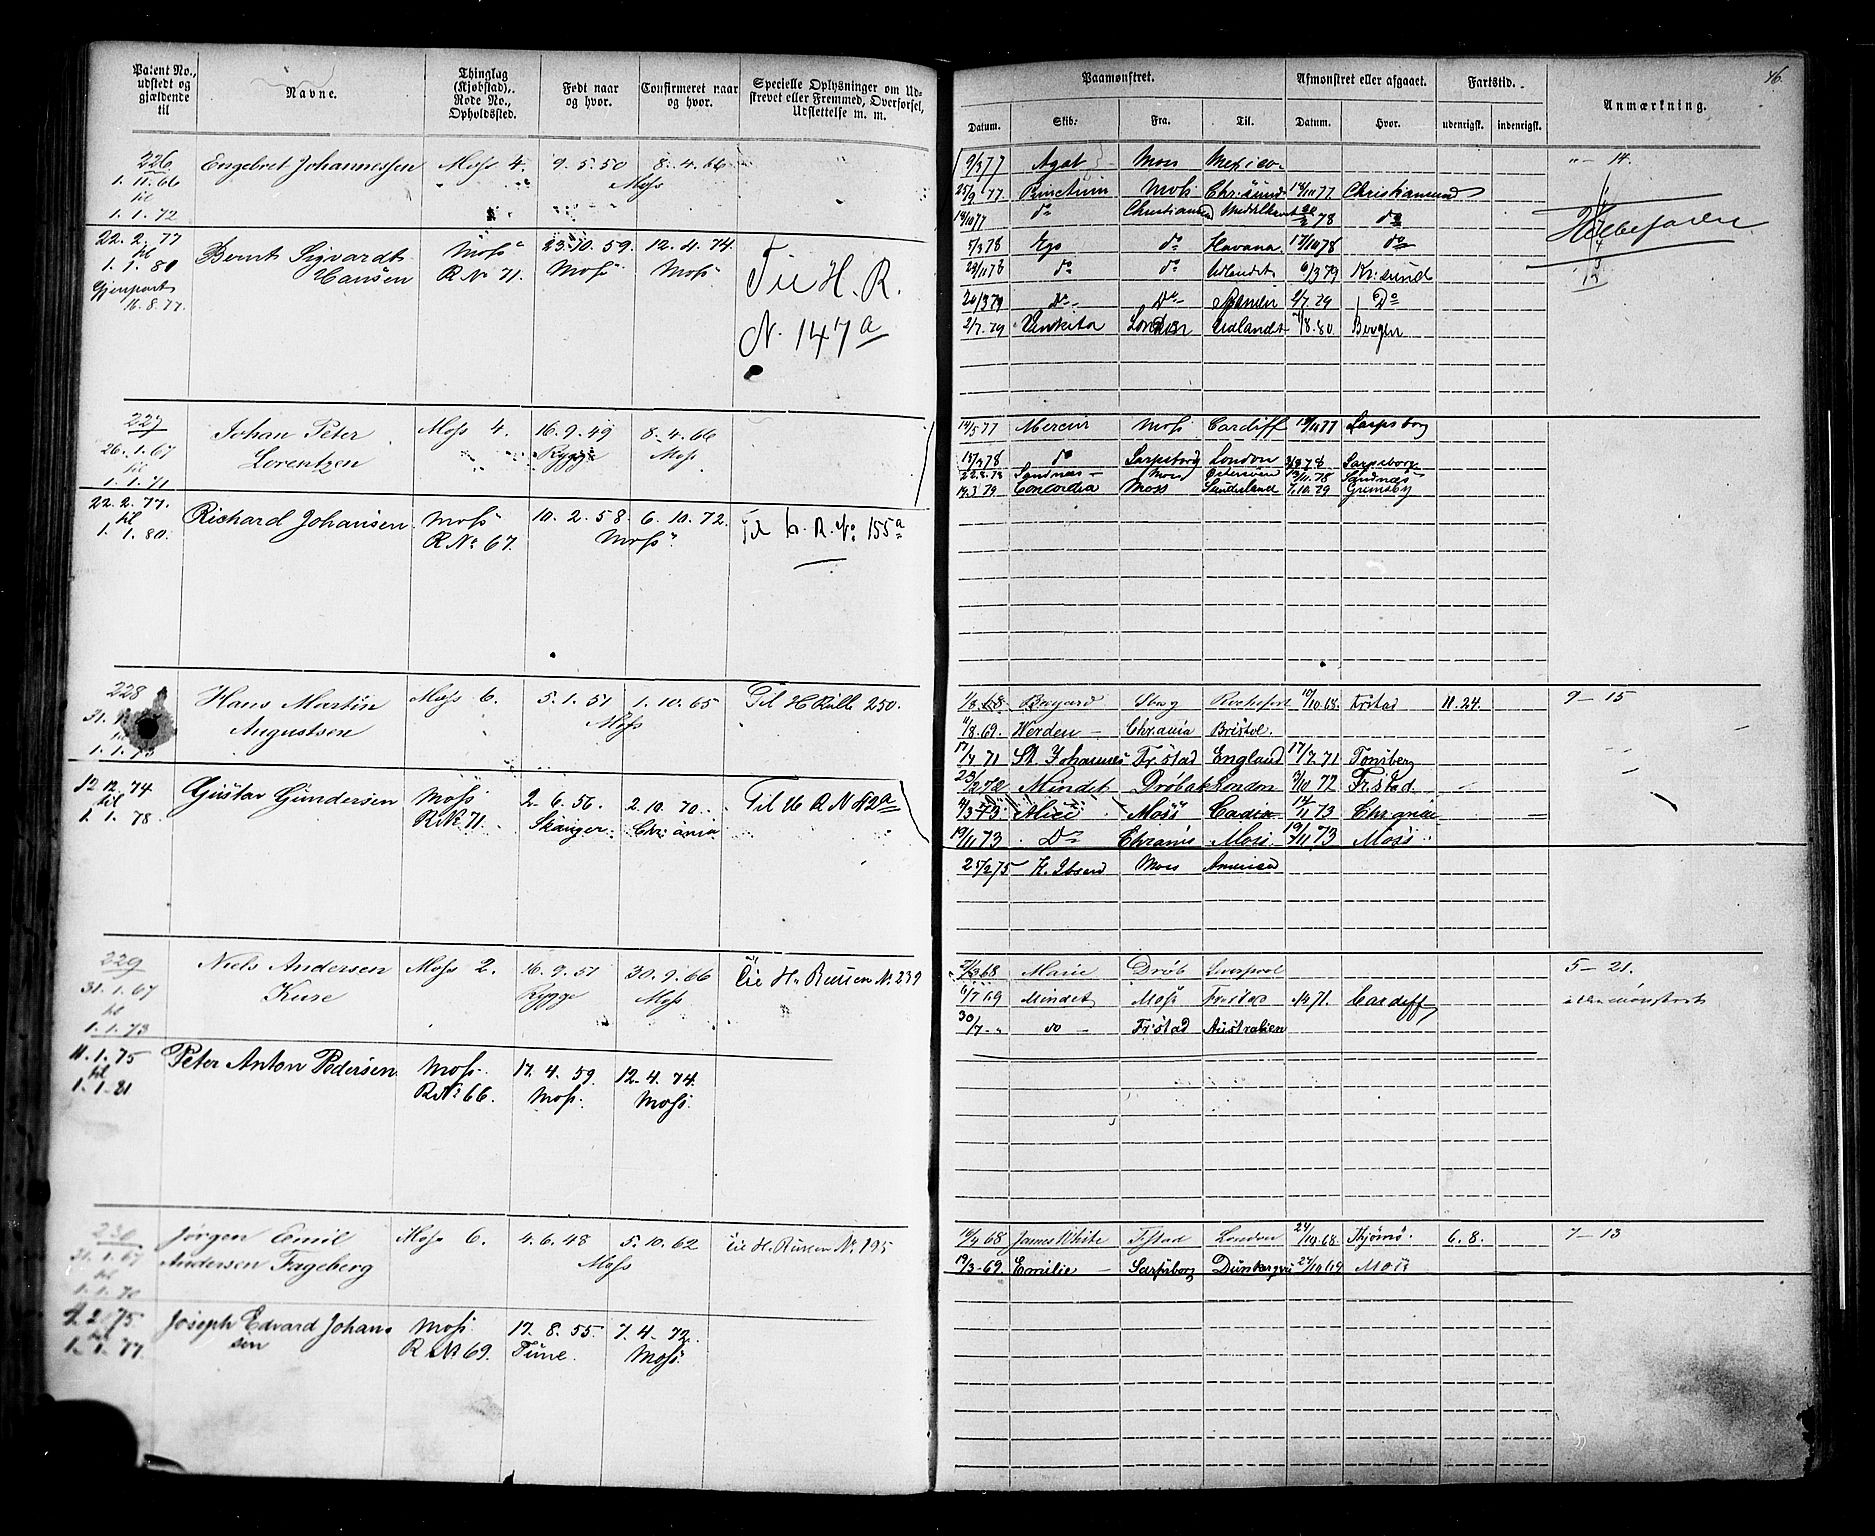 Patent No., udstedt og gjældende til
Navne.
Thinglag (Kjøbstad), Rode No., Opholdssted.
Født naar og hvor.
Confirmeret naar og hvor.
Specielle Oplysninger om Udskrevet eller Fremmed, Overførsel, Udslettelse m. m.
226 Engebret Johannessen Moss 4. 9. 5. 50 8. 4. 66
1. 11. 66 Moss
til
1. 1. 72
22. 2. 77 Bernt Sigvardt Moss 23. 10. 59. 12. 4. 74. Til H. R.
til Hansen R. No 71. Moss Moss
1. 1. 80 N. 147a
Gjenpart
16. 8. 77.
227 Johan Peter Moss 4. 16. 9. 49 8. 4. 66
26. 1. 67 Lorentzen Rygge Moss
til
1. 1. 71
22. 2. 77. Richard Johansen Moss 10. 2. 58. 6. 10. 72. Til H. R. No 155a
til R No 67. Moss
1. 1. 80.
228 Hans Martin Moss 6. 5. 1. 51 1. 10. 65 Til H Rulle 250.
31. Augustsen Moss
1. 1. 73
12. 12. 74 Gustav Gundersen Moss 2. 6. 56. 2. 10. 70. Til H R N 42a
til R. No 71. Chr:ania
1. 1. 78
229 Niels Andersen Moss 2. 16. 9. 51 30. 9. 66 Til H. Rullen No. 239
31. 1. 67 Kure Rygge Moss
til
1. 1. 73
11. 1. 75 Peter Anton Pedersen Moss 17. 4. 59. 12. 4. 74.
til R No 66. Moss. Moss.
1. 1. 81
230 Jørgen Emil Moss 6. 4. 6. 48 5. 10. 62 Til H. Rullen No. 195
31. 1. 67 Andersen Fageberg Moss
til
1. 1. 70
4. 2. 75 Joseph Edvard Johan Moss 17. 8. 55. 7. 4. 72.
til sen R No 69. Tune. Moss.
1. 1. 77.
46
Paamønstret.
Afmønstret eller afgaaet.
Fartstid.
Anmærkning.
Datum. Skib. Fra. Til. Datum. Hvor. udenrigsk. indenrigsk.
9/3 77 Agat Moss Mexico 14.
25/9 77 Punctum Moss Chr:sund 18/10 77 Christiansund
18/10 77 do Christiansund Middelhavet 78 do
5/3 78 Ego do Havana 17/10 78 do
29/11 78 do do Udlandet 6/3 79 Kr:sund
20/3 79 do Do 2/7. 79 Do
2/7. 79 London Udlandet 7/8. 80. Bergen
14/5 77 Mercur Moss Cardiff 19/11 77 Sarpsborg
18/3 78 do Sarpsborg London 78 Sarpsborg
22. 8. 78 Sandnæs Moss 78 Sandnæs
19. 3. 79 Concordia Moss Sunderland 1. 10. 79 Grimsby
1/3 68 Sbog Rochefort 10/10. 68. Frstad 11. 24. 9 - 15
11/8. 69. Werden Chr:ania Bristol.
17/4 71 St. Johannes Fr:stad England 17/7. 71 Tønsberg
23/2 72 Mindet Drøbak London 3/10 72 Fr.stad
4/3 73 Alice Moss Cadix 12/11 73 Chr:ania
19/11 73 Do Chrania Moss. 19/11 73 Moss.
25/2 75 H. Ibsen Moss America
27/3 68 Marie Drøb Liverpool 5 - 21.
6/7 69 Mindet Moss Fr:stad 71. Cardiff
30/7 do Fr:stad Australien
16/4 68 James White Fstad London 24/10. 68. Hjømø. 6. 8. 7 - 13
19/3 - 69. Emilie Sarpsborg 27/10 69 Moss